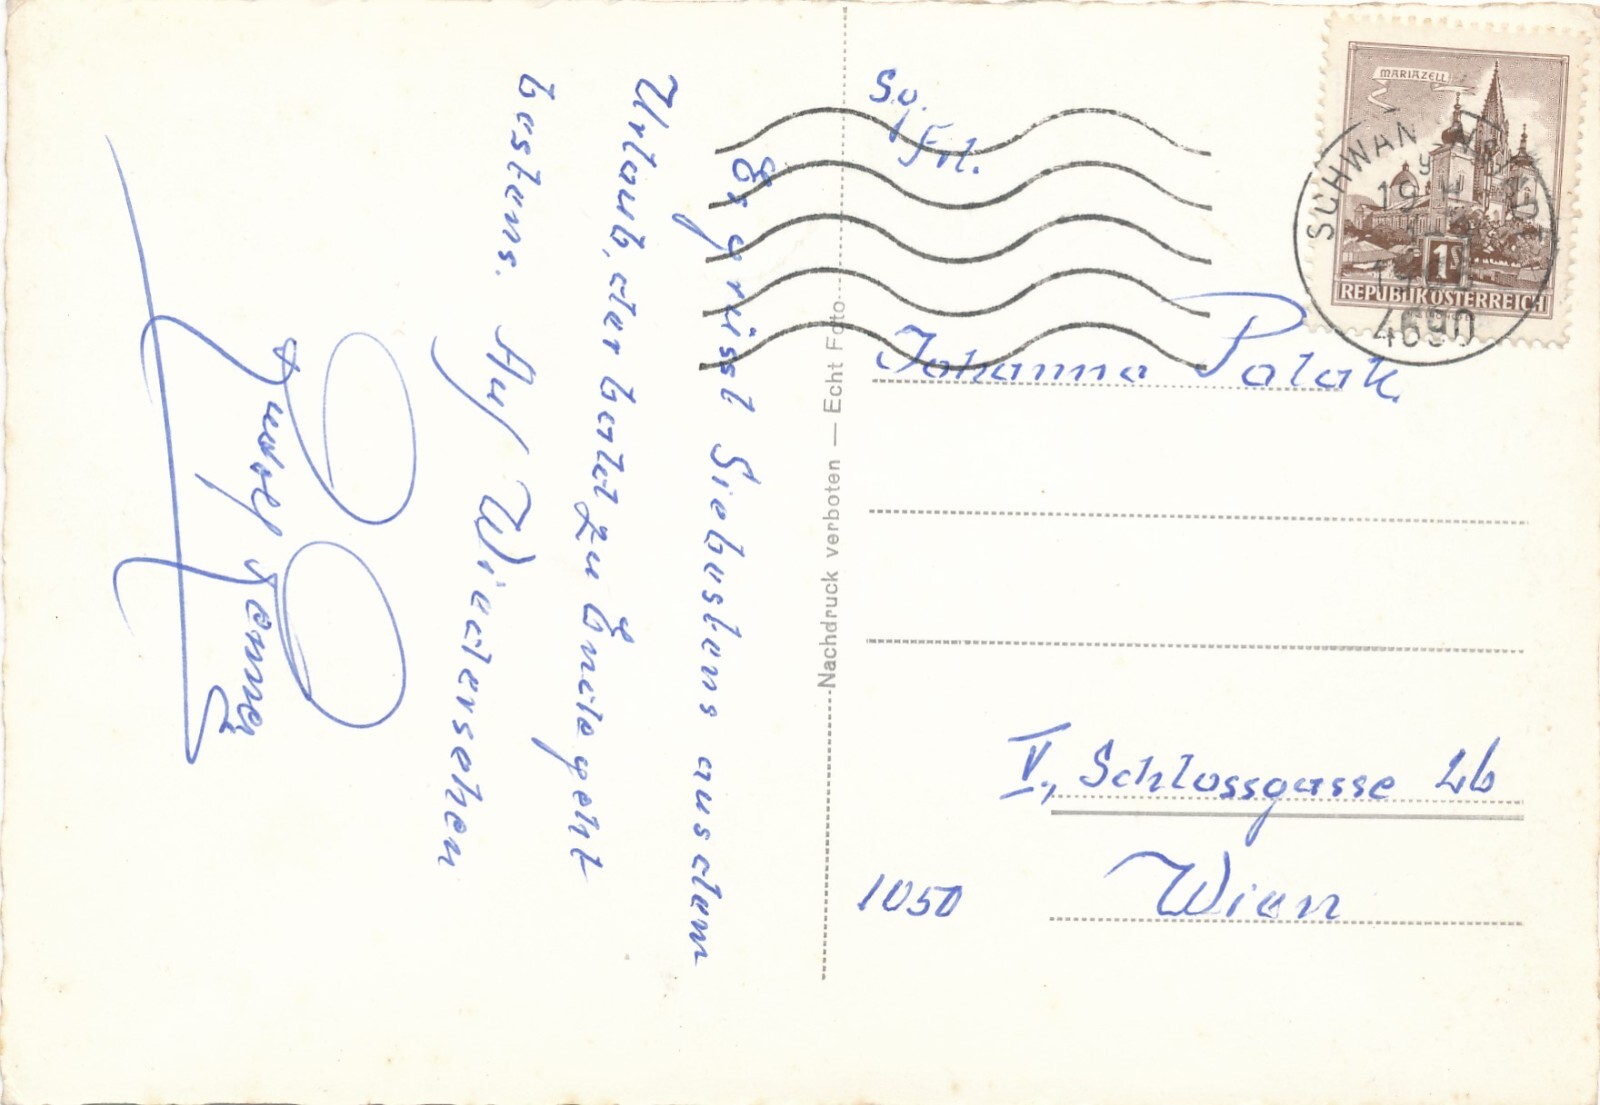 Es grüsst Siebestens aus dem
Urlaub, der bald zu Ende geht
bestens. Auf Wiedersehen
Nachdruck verboten — Echt Foto
S.g.
Frl.
Johanna Polak.
V., Schlossgasse 2b
1050 Wien
MARIAZELL
1S
REPUBLIK ÖSTERREICH
SCHWAN
4690